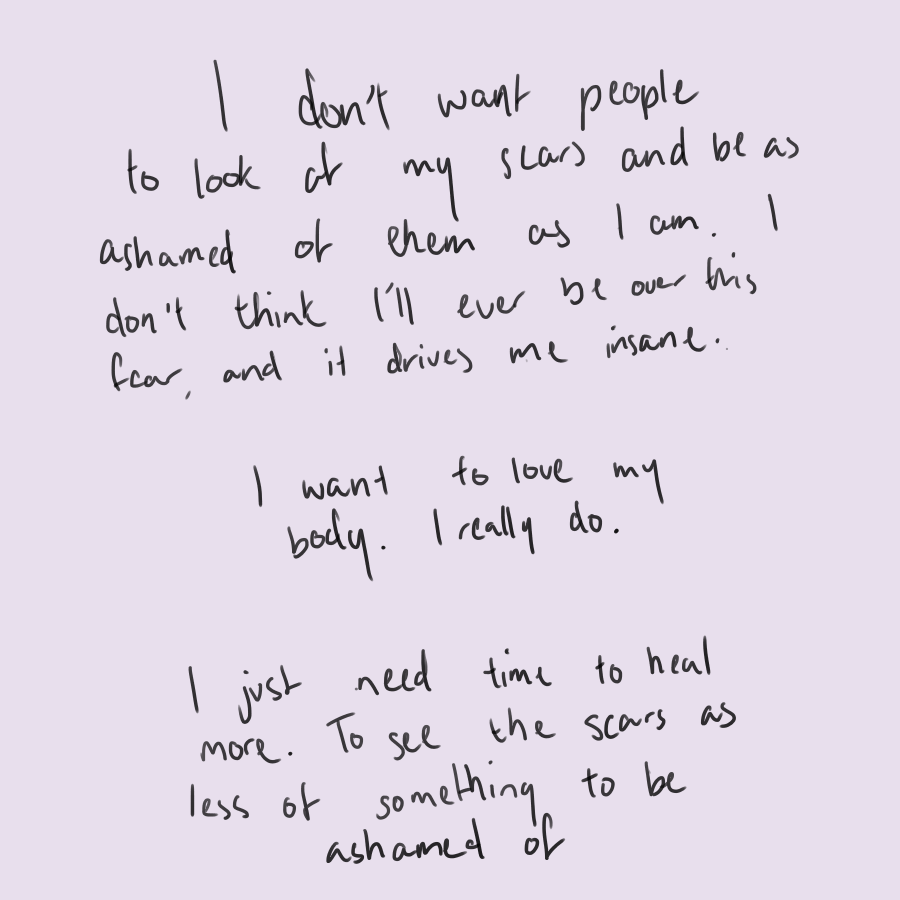 I don't want people
to look at my scars and be as
ashamed of them as I am. I
don't think I'll ever be over this
fear, and it drives me insane.
I want to love my
body. I really do.
I just need time to heal
more. To see the scars as
less of something to be
ashamed of